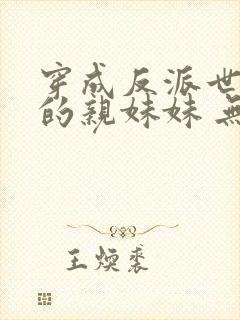 穿成反派世
的親妹妹 無
王煥裘